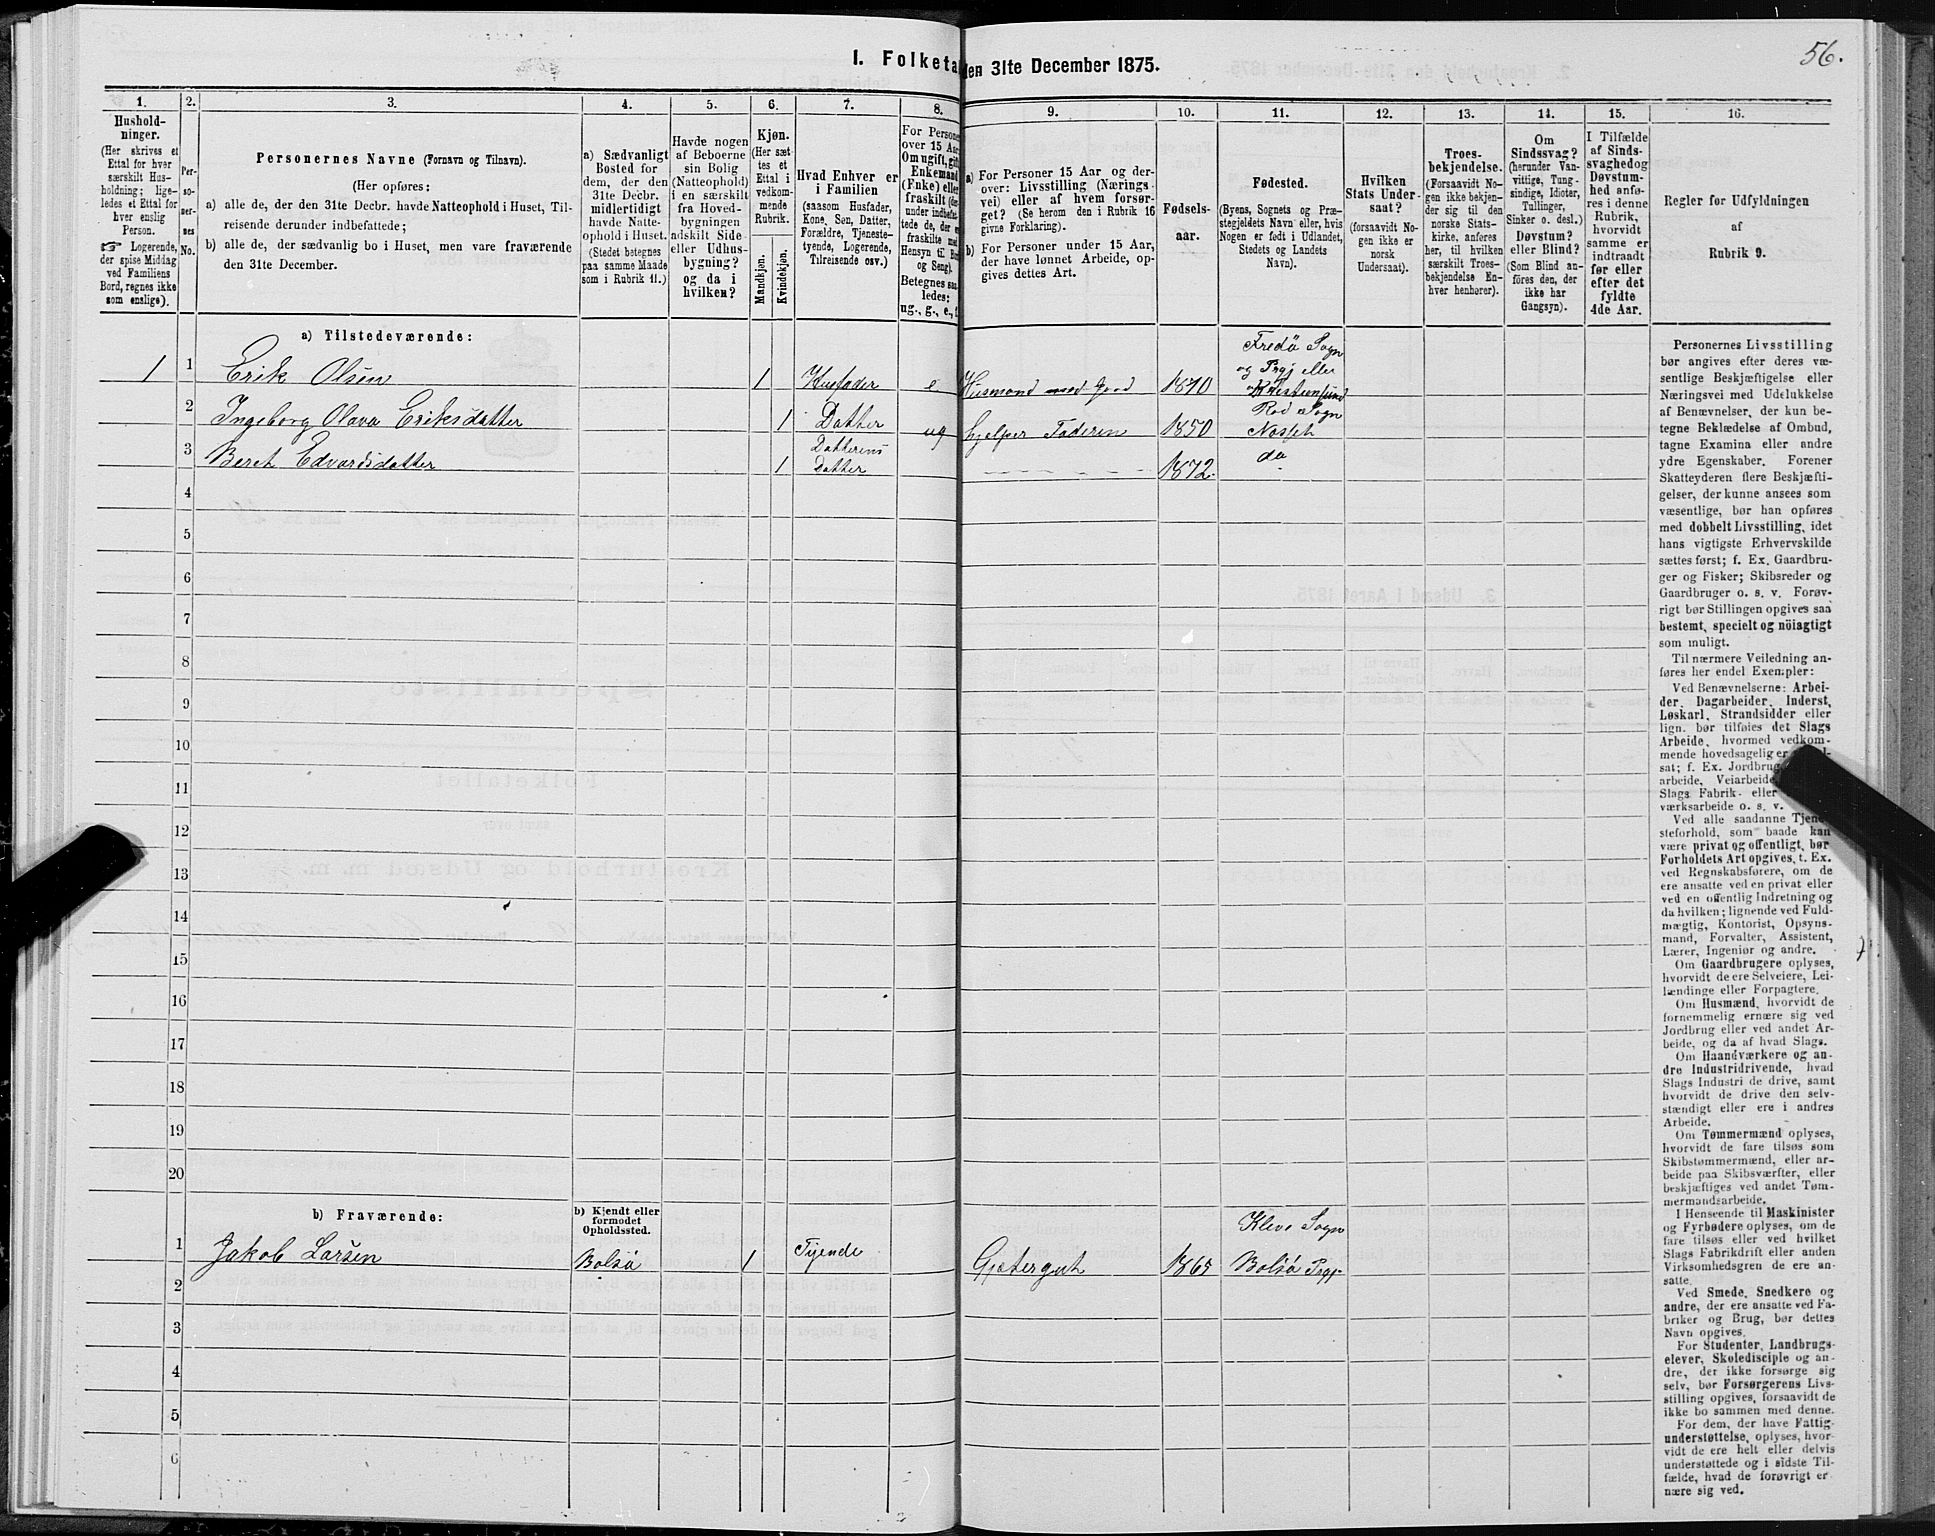 56.
I. Folketal den 31te December 1875.
1.
2.
3.
4.
5.
6.
7.
8.
9.
10.
11.
12.
13.
14.
15.
16.
Hushold-
ninger.
(Her skrives et
Ettal for hver
særskilt Hus-
holdning; lige-
ledes et Ettal for
hver enslig
Person.
☞ Logerende,
der spise Middag
ved Familiens
Bord, regnes ikke
som enslige).
Per-
so-
ner-
nes
No.
Personernes Navne (Fornavn og Tilnavn).
(Her opføres:
a) alle de, der den 31te Decbr. havde Natteophold i Huset, Til-
reisende derunder indbefattede;
b) alle de, der sædvanlig bo i Huset, men vare fraværende
den 31te December.
a) Sædvanligt
Bosted for
dem, der den
31te Decbr.
midlertidigt
havde Natte-
ophold i Huset.
(Stedet betegnes
paa samme Maade
som i Rubrik 11.)
Havde nogen
af Beboerne
sin Bolig
(Natteophold)
i en særskilt
fra Hoved-
bygningen
adskilt Side-
eller Udhus-
bygning?
og da i
hvilken?
Kjøn.
(Her sæt-
tes et
Ettal i
vedkom-
mende
Rubrik.
Mandkjøn.
Kvindekjøn.
Hvad Enhver er
i Familien
(saasom Husfader,
Kone, Søn, Datter,
Forældre, Tjeneste-
tyende, Logerende,
Tilreisende osv.)
For Personer
over 15 Aar
Om ugift, gift,
Enkemand
(Enke) eller
fraskilt
under indbefat-
tede de, der
fraskilte med
Hensyn til Bord
og Seng).
Betegnes saa-
ledes:
ug., g., e., f.
a) For Personer 15 Aar og der-
over: Livsstilling (Nærings-
vei) eller af hvem forsør-
get? (Se herom den i Rubrik 16
givne Forklaring).
b) For Personer under 15 Aar,
der have lønnet Arbeide, op-
gives dettes Art.
Fødsels-
aar.
Fødested.
(Byens, Sognets og Præ-
stegjeldets Navn eller, hvis
Nogen er født i Udlandet,
Stedets og Landets
Navn).
Hvilken
Stats Under-
saat?
(forsaavidt No-
gen ikke er
norsk
Undersaat).
Troes-
bekjendelse.
(Forsaavidt No-
gen ikke bekjen-
der sig til den
norske Stats-
kirke, anføres
her, til hvilken
særskilt Troes-
bekjendelse En-
hver henhører).
Om
Sindssvag?
(herunder Van-
vittige, Tung-
sindige, Idioter,
Tullinger,
Sinker o. desl.)
Døvstum?
eller Blind?
(Som Blind an-
föres den, der
ikke har
Gangsyn).
I Tilfælde
af Sinds-
svaghed og
Døvstum-
hed anfø-
res i denne
Rubrik,
hvorvidt
samme er
indtraadt
før eller
efter det
fyldte
4de Aar.
Regler for Udfyldningen
af
Rubrik 9.
a) Tilstedeværende:
Fredö Sogn
og Prgj eller
1 1 Erik Olsen 1 Husfader e Husmand med Jord 1810 Kristiansund
Rød Sogn
2 Ingeborg Olava Eriksdatter 1 Datter ug hjelper Faderen 1850 Nesset
Datterens
3 Beret Edvardsdatter 1 Datter 1872 do
4
5
6
7
8
9
10
11
12
13
14
15
16
17
18
19
20
b) Fraværende:
b) Kjendt eller
formodet
Opholdssted.
Kleve Sogn
1 Jakob Larsen Bolsö 1 Tjende Gjætergut 1865 Bolsö Prgj.
2
3
4
5
6
Personernes Livsstilling
bør angives efter deres væ-
sentlige Beskjæftigelse eller
Næringsvei med Udelukkelse
af Benævnelser, der kun be-
tegne Beklædelse af Ombud,
tagne Examina eller andre
ydre Egenskaber. Forener
Skatteyderen flere Beskjæfti-
gelser, der kunne ansees som
væsentlige, bør han opføres
med dobbelt Livsstilling, idet
hans vigtigste Erhvervskilde
sættes først; f. Ex. Gaardbru-
ger og Fisker; Skibsreder og
Gaardbruger o. s. v. Forøv-
rigt bør Stillingen opgives saa
bestemt, specielt og nöiagtigt
som muligt.
Til nærmere Veiledning an-
føres her endel Exempler:
Ved Benævnelserne: Arbei-
der, Dagarbeider, Inderst,
Løskarl, Strandsidder eller
lign. bør tilføies det Slags
Arbeide, hvormed vedkom-
mende hovedsagelig er
sat; f. Ex. Jordbrug
arbeide, Veiarbeide,
Slags Fabrik- eller
værksarbeide o. s. v.
Ved alle saadanne Tjene-
steforhold, som baade kan
være privat og offentligt, bør
Forholdets Art opgives, t. Ex.
ved Regnskabsførere, om de
ere ansatte ved en privat eller
ved en offentlig Indretning og
da hvilken; lignende ved Fuld-
mægtig, Kontorist, Opsyns-
mand, Forvalter, Assistent,
Lærer, Ingeniør og andre.
Om Gaardbrugere oplyses,
hvorvidt de ere Selveiere, Lei-
lændinge eller Forpagtere.
Om Husmænd, hvorvidt de
fornemmelig ernære sig ved
Jordbrug eller ved andet Ar-
beide, og da af hvad Slags.
Om Haandværkere og an-
dre Industridrivende, hvad
Slags Industri de drive, samt
hvorvidt de drive den selv-
stændigt eller ere i andres
Arbeide.
Om Tømmermænd oplyses,
hvorvidt de fare tilsøs som
Skibstømmermænd, eller ar-
beide paa Skibsværfter, eller
beskjæftiges ved andet Tøm-
mermandsarbeide.
I Henseende til Maskinister
og Fyrbødere oplyses, om de
fare tilsøs eller ved hvilket
Slags Fabrikdrift eller anden
Virksomhedsgren de ere an-
satte.
Ved Smede, Snedkere og
andre, der ere ansatte ved Fa-
briker og Brug, bør dettes
Navn opgives.
For Studenter, Landbrugs-
elever, Skoledisciple og an-
dre, der ikke forsørge sig
selv, bør Forsørgerens Livs-
stilling opgives, forsaavidt de
ikke bo sammen med denne.
For dem, der have Fattig-
understøttelse, oplyses, hvor-
vidt de ere helt eller delvis
understøttede og i sidste Til-
fælde, hvad de forøvrigt er-
nære sig ved.